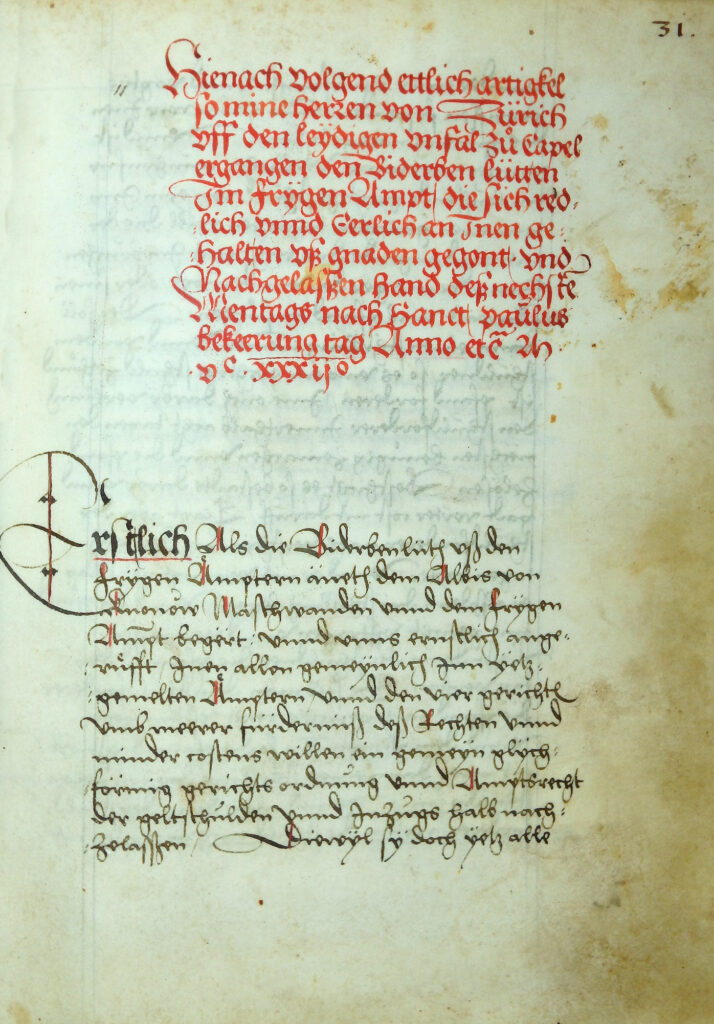 31.
Hienach volgend ettlich artigkel
so mine herren von Zürich
vff den leydigen vnfal zů Capel
ergangen den Biderben lütten
Im frygen Ampt, die sich red-
lich vnnd Eerlich an Inen ge-
halten vß gnaden gegont. vnd
Nachgelaßen hand deß nechstē
Mentags nach Sanct paulus
bekeerung tag Anno etc̄ M.
.vc. xxxijo
Erstlich Als die Biderbenlüth vß den
frygen Ämptern äneth dem Albis von
Knonow Maschwanden vnnd dem frygen
Ampt begert. vnnd vnns ernstlich ange-
rüfft Inen allen gemeynlich Inn yetz-
gemelten Ämptern vnnd den vier gerichtē
vmb meerer fürderniß deß Rechten vnnd
minder costens willen ein gemeyn glych-
förmig gerichts ordnung vnnd Amptsrecht
der geltschulden vnnd Inzugs halb nach-
zelaßen / Diewyl sy doch yetz alle